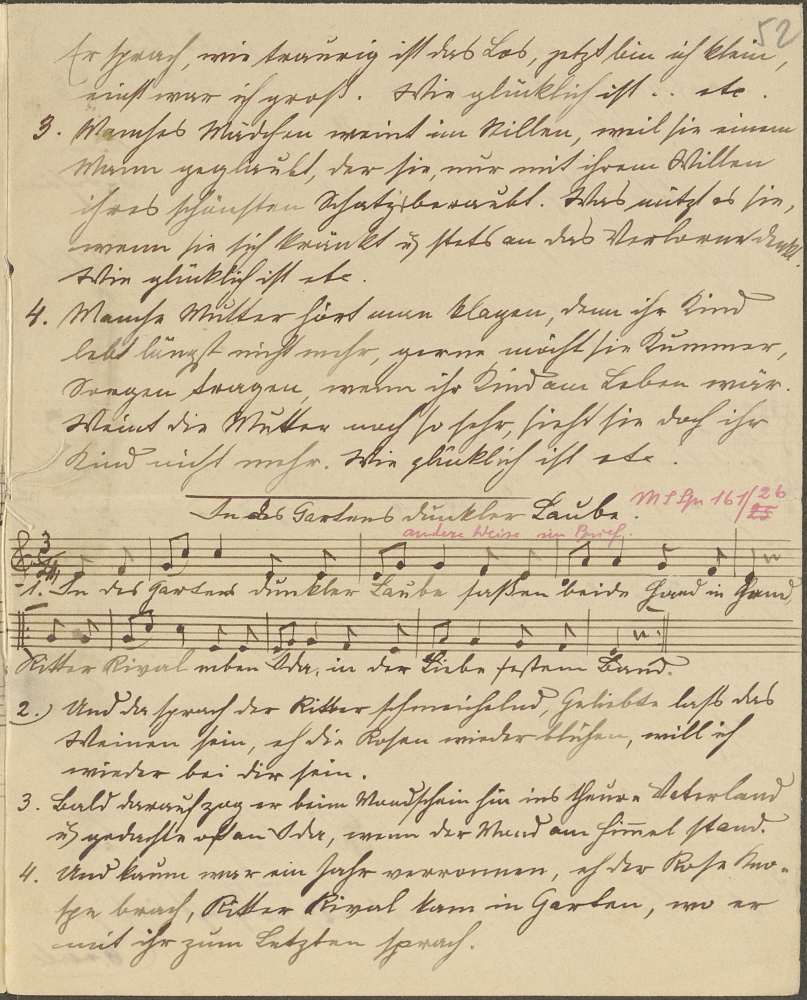 52
Er sprach, wie traurig ist das Los, jetzt bin ich klein,
einst war ich groß. Wie glücklich ist .. etc.
3. Manches Mädchen weint im Stillen, weil sie einem
Mann geglaubt, der sie, nur mit ihrem Willen
ihres schönsten Schatzes beraubt. Was nützt es sie,
wenn sie sich kränkt u. stets an das Verlorne denkt.
Wie glücklich ist etc.
4. Manche Mutter hört man klagen, denn ihr Kind
lebt längst nicht mehr, gerne möcht sie Kummer,
Sorgen tragen, wenn ihr Kind am Leben wär.
Weint die Mutter noch so sehr, sieht sie doch ihr
Kind nicht mehr. Wie glücklich ist etc.
In des Gartens dunkler Laube.
161/26
25
andere Weise im Brief.
3
4
1. In des Gartens dunkler Laube saßen beide Hand in Hand,
Ritter Rival neben Ida, in der Liebe festem Band.
2.) Und da sprach der Ritter schmeichelnd, Geliebte laß das
Weinen sein, eh die Rosen wieder blühen, will ich
wieder bei dir sein.
3. Bald darauf zog er beim Mondschein hin ins theure Vaterland
u. gedachte oft an Ida, wenn der Mond am Himmel stand.
4. Und kaum war ein Jahr verronnen, eh der Rose Kno-
spe brach, Ritter Rival kam in Garten, wo er
mit ihr zum Letzten sprach.